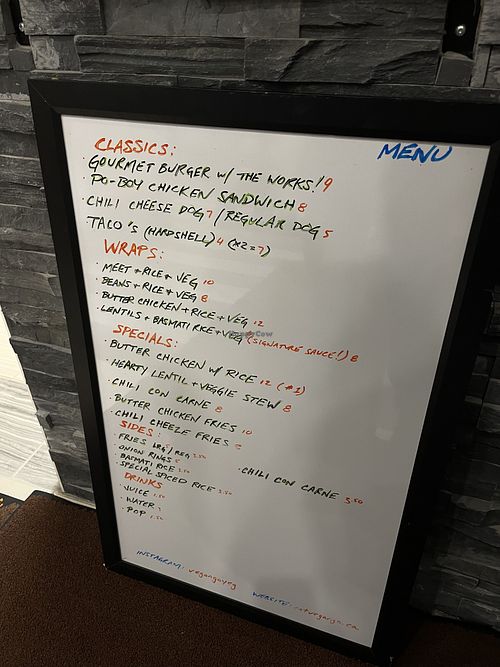 MENU
CLASSICS:
· GOURMET BURGER w/ THE WORKS! 9
· PO-BOY CHICKEN SANDWICH 8
· CHILI CHEESE DOG 7 / REGULAR DOG 5
TACO'S (HARDSHELL) 4 (x2=7)
WRAPS:
· MEET + RICE + VEG 10
· BEANS + RICE + VEG 8
· BUTTER CHICKEN + RICE + VEG 12
· LENTILS + BASMATI RICE + VEG (SIGNATURE SAUCE!) 8
SPECIALS:
· BUTTER CHICKEN w/ RICE 12 (#1)
· HEARTY LENTIL + VEGGIE STEW 8
· CHILI CON CARNE 8
· BUTTER CHICKEN FRIES 10
· CHILI CHEEZE FRIES
SIDES:
· FRIES LRG / REG 3.50
· ONION RINGS 5
· BASMATI RICE 2.50
· SPECIAL SPICED RICE 3.50
· CHILI CON CARNE 5.50
DRINKS
· JUICE 1.50
· WATER
· POP 1.50
INSTAGRAM: vegangoyeg
WEBSITE: